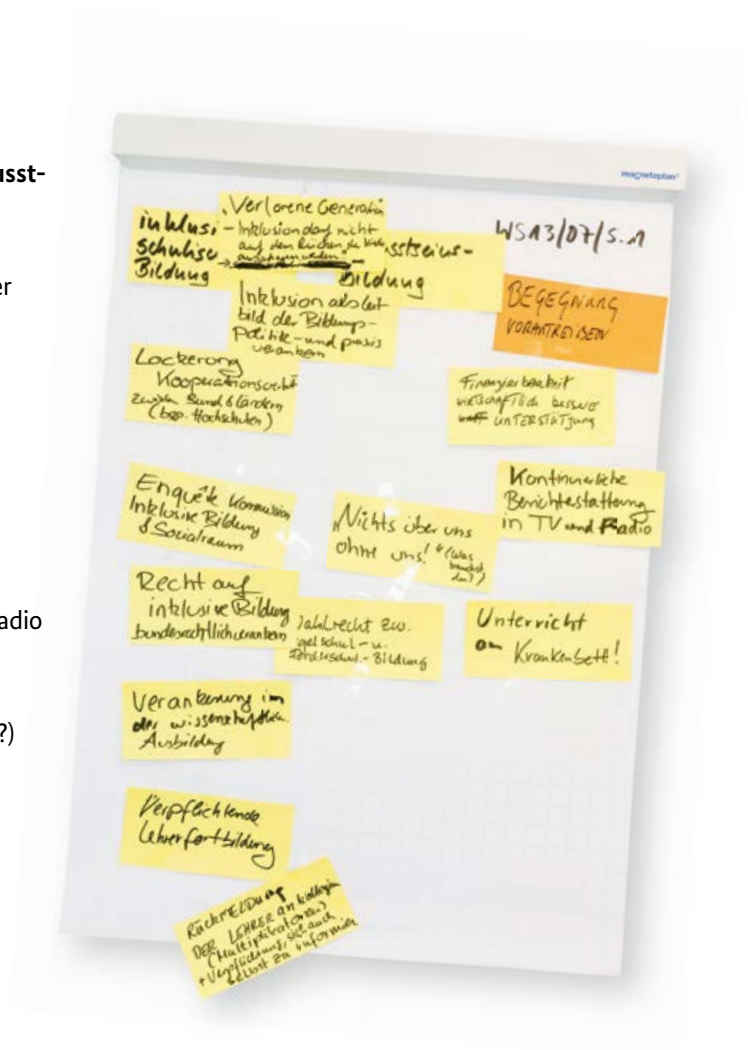 usst-
er
adio
?)
magnetoplan
WS13/07/S.1
inklusi
schulisc
Bildung
"Verlorene Generation
- Inklusion darf nicht
auf den Rücken der Kinder
ausgetragen werden"
sstseins-
Bildung
BEGEGNUNG
VORANTREIBEN
Inklusion als Leit
bild der Bildungs-
Politik- und praxis
verankern
Lockerung
Kooperationsverbot
zwischen Bund & Ländern
(bzp. Hochschulen)
Finanzierbarkeit
wirtschaftlich besser
UNTERSTÜTZUNG
Enquête Kommission
Inklusive Bildung
& Sozialraum
"Nichts über uns
ohne uns!" (Was
brauchst
du?)
Kontinuierliche
Berichtestattung
in TV und Radio
Recht auf
inklusive Bildung
bundesrechtlich verankern
ahlrecht zw.
gelschul- u.
Förderschul-Bildung
Unterricht
am Krankenbett!
Verankerung in
der wissenschaftlich.
Ausbildung
Verpflichtende
Lehrerfortbildung
RÜCKMELDUNG
DER LEHRER an Kollegien
(Multiplikatoren)
+ Verpflichtung, sich auch
selbst zu informieren